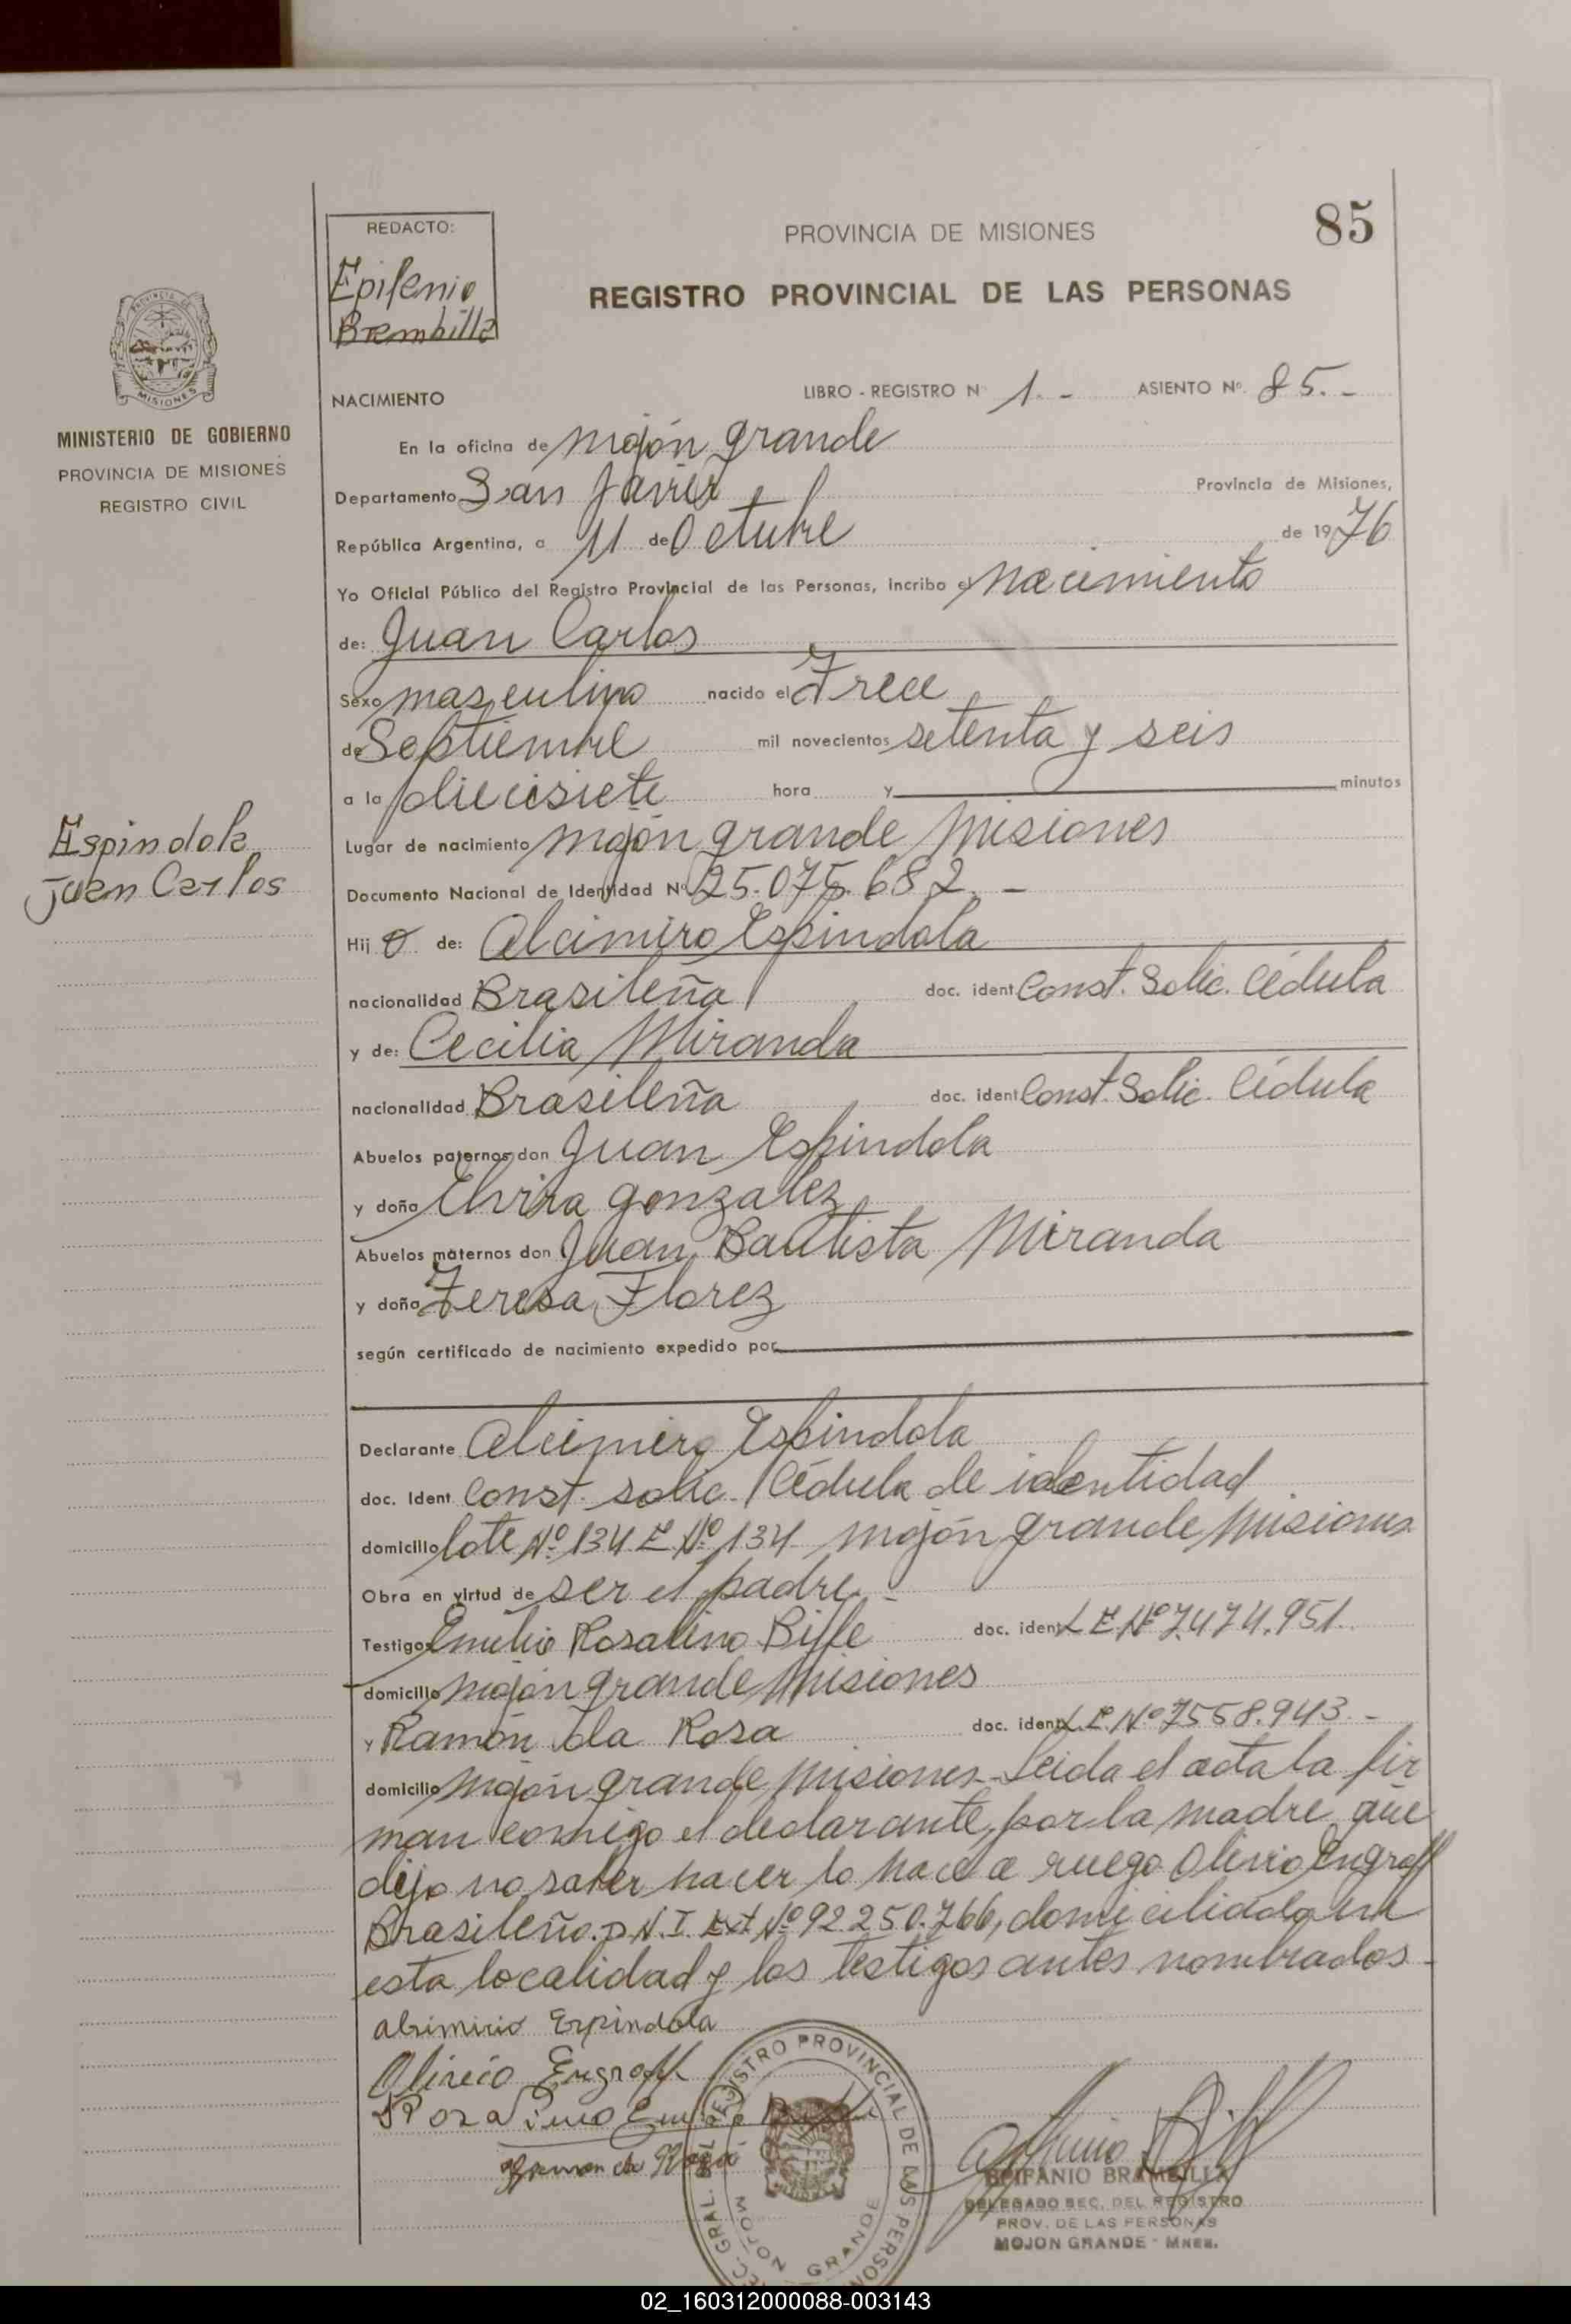 REDACTO:
Epifenio
Brembilla
PROVINCIA DE MISIONES
85
REGISTRO PROVINCIAL DE LAS PERSONAS
PROVINCIA DE
MISIONES
MINISTERIO DE GOBIERNO
PROVINCIA DE MISIONES
REGISTRO CIVIL
NACIMIENTO
LIBRO - REGISTRO Nº 1. - ASIENTO Nº. 85. -
En la oficina de mojón grande
Departamento San Javier Provincia de Misiones,
República Argentina, a 11 de Octubre de 1976
Yo Oficial Público del Registro Provincial de las Personas, incribo el nacimiento
de: Juan Carlos
Sexo masculino nacido el Trece
de Septiembre mil novecientos setenta y seis
a la diecisiete hora y minutos
Espindola
Juan Carlos
Lugar de nacimiento mojón grande Misiones
Documento Nacional de Identidad Nº 25.075.682. -
Hij o de: Alcimiro Espindola
nacionalidad Brasileña doc. ident Const. Solic. Cédula
y de: Cecilia Miranda
nacionalidad Brasileña doc. ident Const. Solic. Cédula
Abuelos paternos don Juan Espindola
y doña Elvira gonzalez
Abuelos maternos don Juan Bautista Miranda
y doña Teresa Florez
según certificado de nacimiento expedido por
Declarante Alcimiro Espindola
doc. Ident Const. solic. Cédula de identidad
domicilio lote Nº 134 E Nº 134 mojón grande Misiones
Obra en virtud de ser el padre. -
Testigo Emilio Rosalino Biffe doc. ident L E Nº 7.474.951.
domicilio mojón grande Misiones
y Ramón da Rosa doc. ident L.E. Nº 7558.943. -
domicilio mojón grande Misiones - Leida el acta la fir
man comigo el declarante, por la madre que
dijo no saber hacer lo hace a ruego Olivio Engroff
Brasileño. D.N.I. Ext Nº 92.250.766, domiciliado en
esta localidad y los testigos antes nombrados -
alsimirio Espindola
Olirio Engroff
Rosalino Emilio
Ramon da Rosa
REGISTRO PROVINCIAL DE LAS PERSONAS
MOJON GRANDE
EPIFANIO BRAMBILLA
DELEGADO SEC. DEL REGISTRO
PROV. DE LAS PERSONAS
MOJON GRANDE - Mnes.
02_160312000088-003143